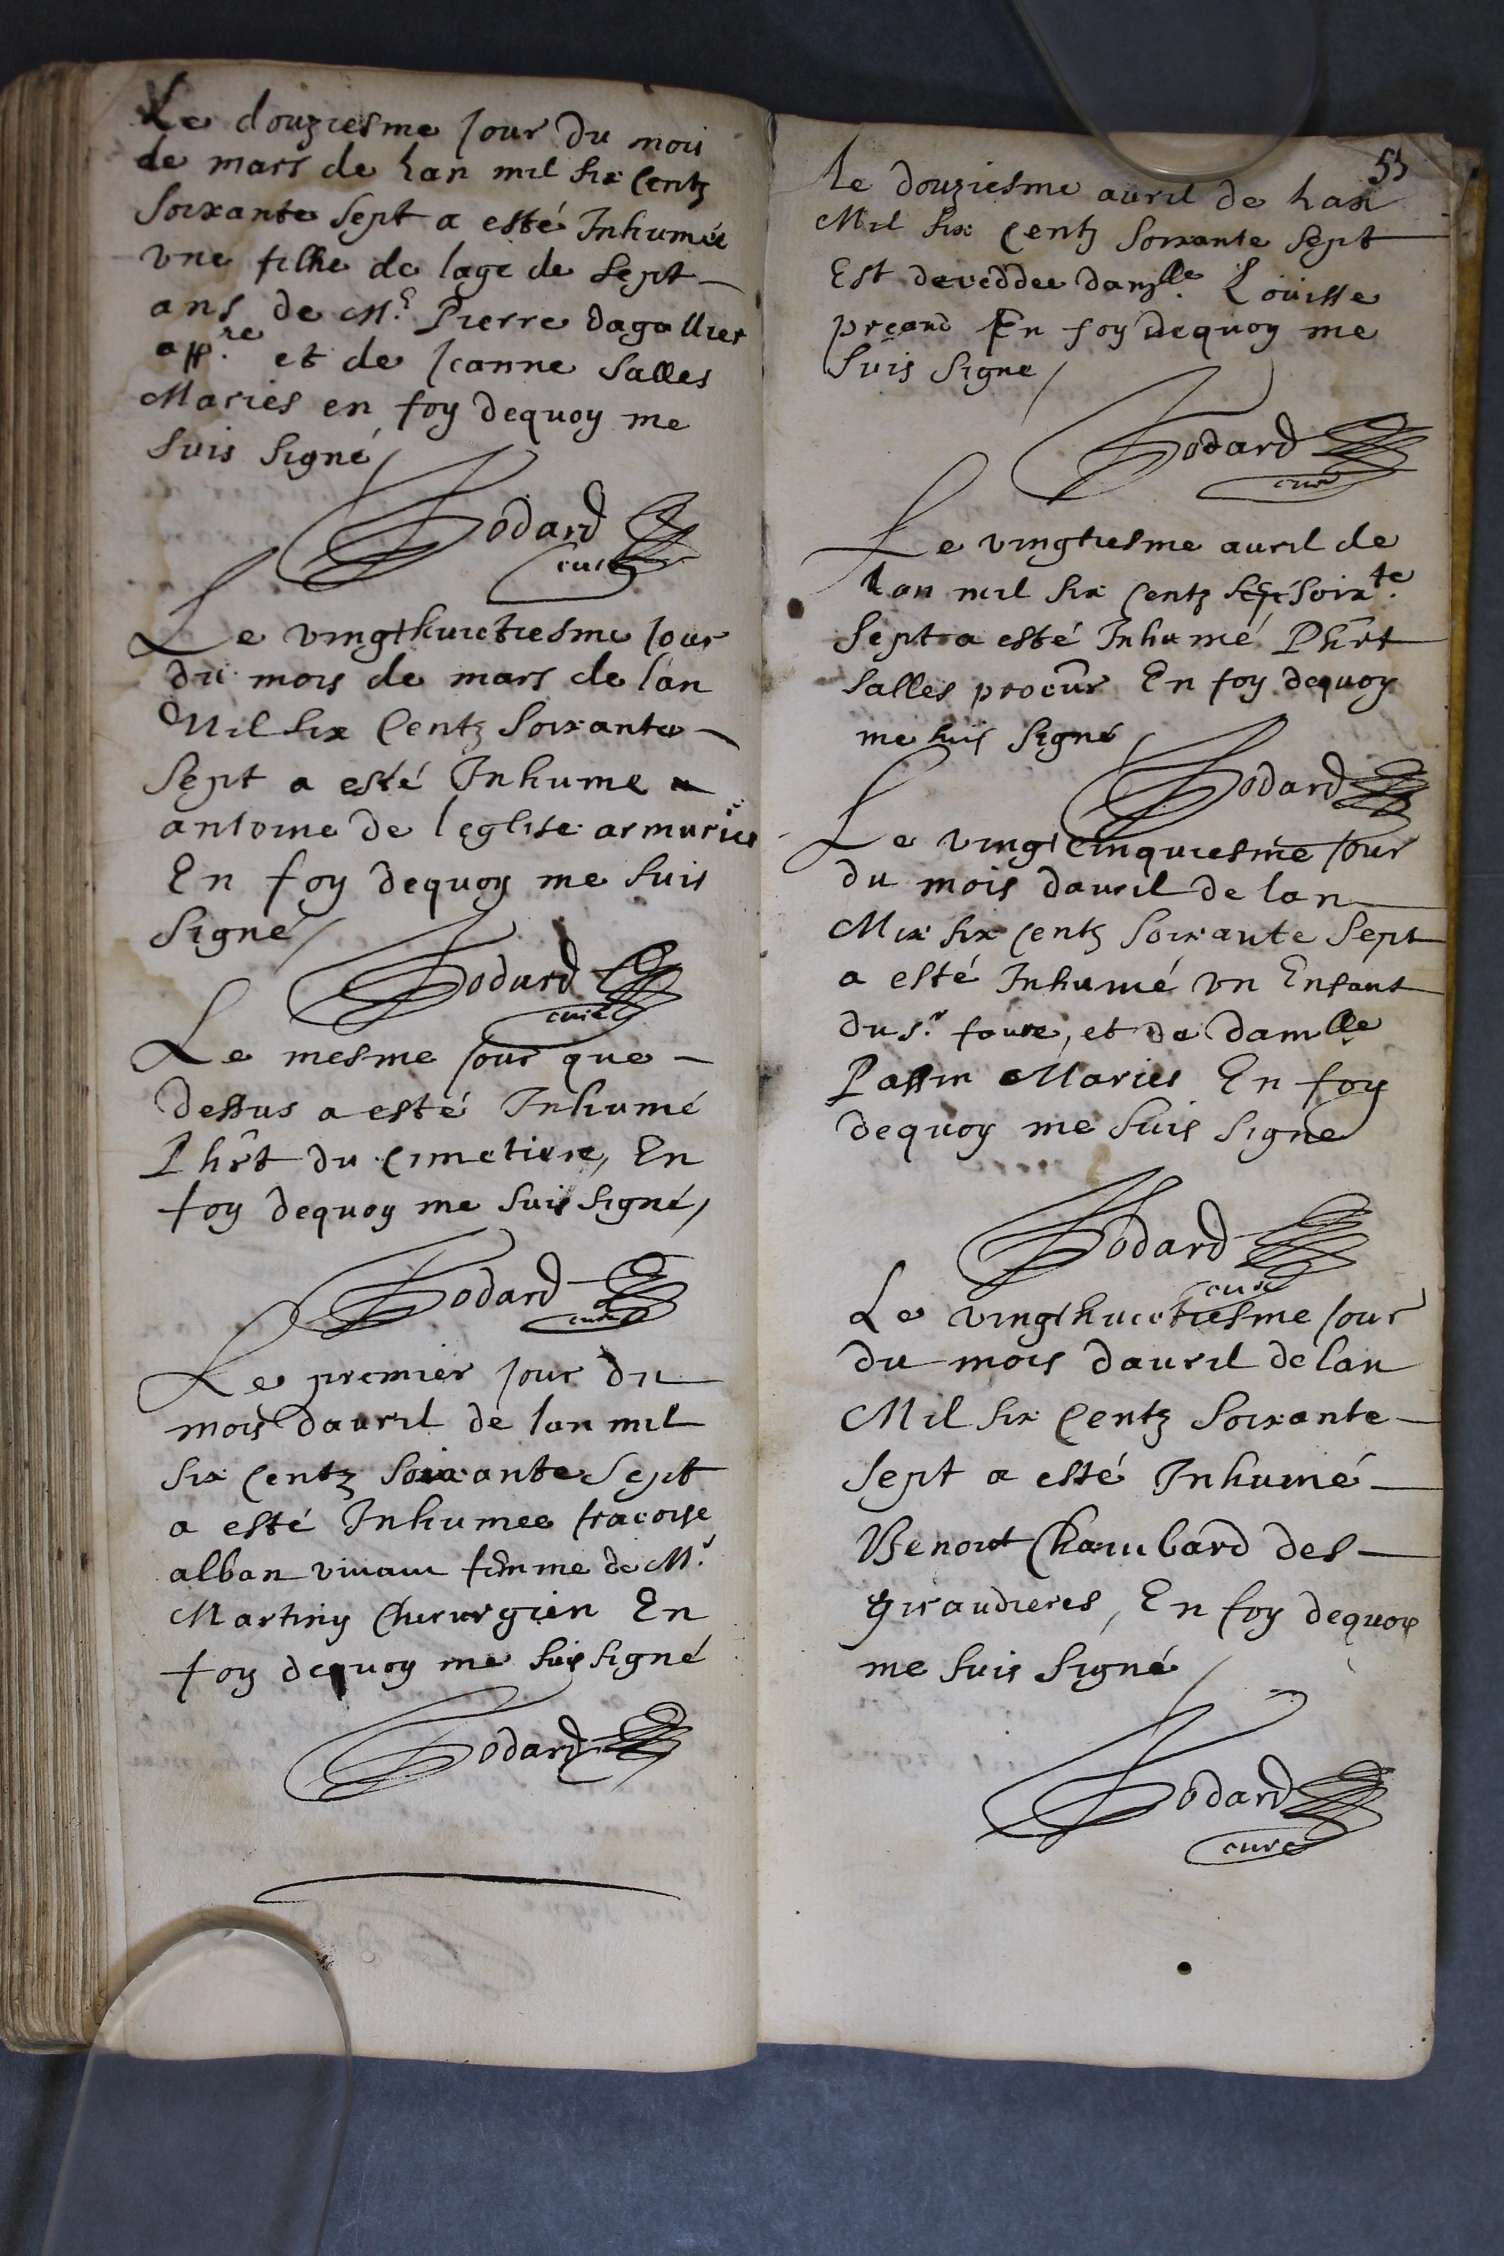 Le douziesme jour du mois
de mars de lan mil six centz
soixante sept a esté Inhumée
une filhe de lage de sept
ans de Mr. Pierre dagallier
appre. et de Jeanne salles
Maries en foy dequoy me
suis signé
hodard
curé
Le vingthuictiesme jour
du mois de mars de lan
Mil six centz soixante
sept a esté Inhume
antoine de leglise armurier
En foy dequoy me suis
signé
hodard
curé
Le mesme jour que
dessus a esté Inhumé
Phrt du cimetiere, En
foy dequoy me suis signé
hodard
curé
Le premier jour du
mois davril de lan mil
six centz soixante sept
a esté Inhumee fracoise
alban vivant femme de Mr.
Martiny chirurgien En
foy dequoy me suis signé
hodard
53
Le douziesme avril de lan
Mil six centz soixante sept
Est deceddee damlle. Louisse
En foy dequoy me
suis signe
hodard
curé
Le vingtiesme avril de
lan mil six centz sept soixte.
sept a esté Inhumé Phrt
salles procur En foy dequoy
me suis signé
hodard
Le vingt cinquiesme jour
du mois davril de lan
Mix six centz soixante sept
a esté Inhumé un Enfant
du sr. faure, et de damlle
Passin Maries En foy
dequoy me suis signé
hodard
curé
Le vingthuictiesme jour
du mois davril de lan
Mil six centz soixante
sept a esté Inhumé
Benoict Chambard des
giraudieres, En foy dequoy
me suis signé
hodard
curé